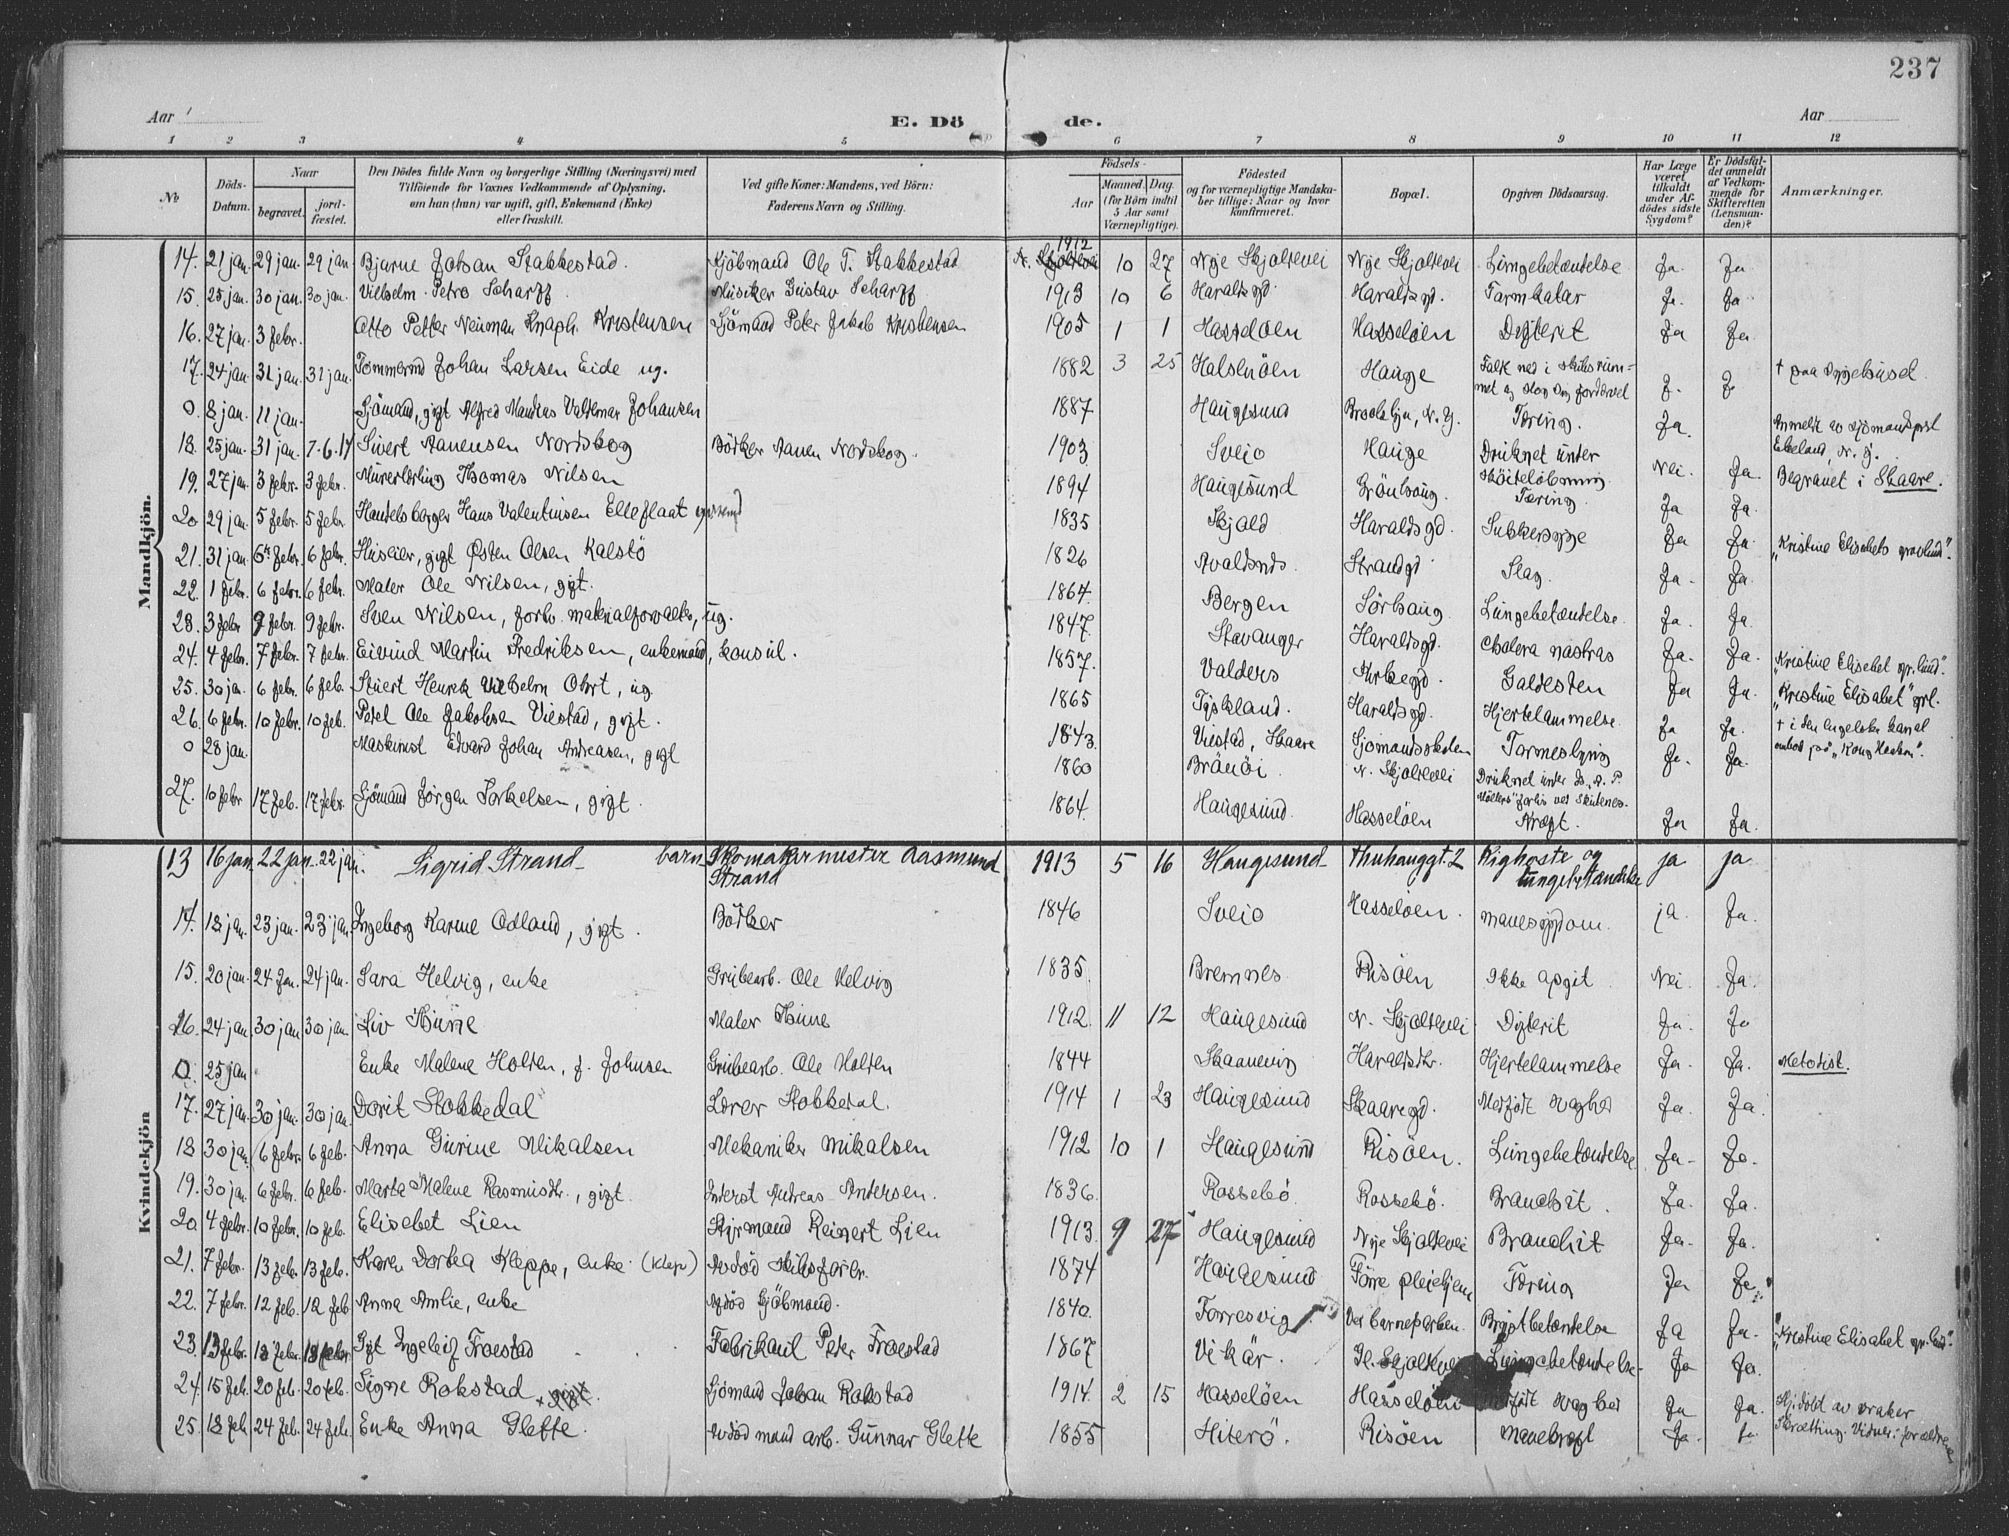 237
Aar
E. Dö de.
Aar
1 2 3 4 5 6 7 8 9 10 11 12
No
Döds-Datum.
Naar
begravet.
jord-fæstet.
Den Dödes fulde Navn og borgerlige Stilling (Næringsvei) med
Tilföiende for Voxnes Vedkommende af Oplysning,
om han (hun) var ugift, gift, Enkemand (Enke)
eller fraskilt.
Ved gifte Koner: Mandens, ved Börn:
Faderens Navn og Stilling.
Födsels-
Aar
Maaned. Dag.
(for Börn indtil
5 Aar samt
Værnepligtige).
Födested
og for værnepligtige Mandska-
ber tillige: Naar og hvor
konfirmeret.
Bopæl.
Opgiven Dödsaarsag.
Har Læge
været
tilkaldt
under Af-
dödes sidste
Sygdom?
Er Dödsfal-
det anmeldt
af Vedkom-
mende for
Skifteretten
(Lensman-
den)?
Anmærkninger.
Mandkjön.
14. 21 jan. 29 jan. 29 jan Bjarne Johan Stakkestad. Kjöbmand Ole T. Stakkestad 1912 10 27 Nye Skjoldevei Nye Skjoldevei Lungebetændelse Ja. Ja
15. 25 jan. 30 jan. 30 jan. Vilhelm Petro Scharff. Musiker Gustav Scharff. 1913 10 6 Haraldsgd. Haraldsgd. Tarmkatar Ja. Ja.
16. 27 jan 3 febr. Otto Petter Neuman Knaph. Kristensen Sjömand Peter Jakob Kristensen 1905 1 1 Hasseløen Hasseløen Difterit Ja Ja
17. 24 jan 31 jan. 31 jan. Tömmermd Johan Larsen Eide ug. 1882 3 25 Halsnöen Hauge Faldt ned i skibsrum-
met og slog seg fordærvet J. J † paa sygehuset
0. 8 jan. 11 jan. Sjömand, gift Alfred Mandias Valdemar Johansen 1887 Haugesund Brooklyn, N. Y. Tæring. Ja. Anmeldt av sjömandsprst
Ekeland, N. Y.
18. 25 jan. 31 jan 7-6.14 Sivert Aanensen Nordskog Bödker Aanen Nordskog. 1903 Sveio Hauge Druknet under
skøiteløbning Nei. Ja. Begravet i Skaare.
19. 27 jan. 3 febr. 3 febr. Murerlærling Thomas Nilsen 1894 Haugesund Grönhaug. Tæring. Ja Ja.
20 29 jan. 5 febr. 5 febr. Handelsborger Hans Valentinsen Elleflaat 1835 Skjold Haraldsgd. Sukkersyge Ja Ja. "Kristine Elisabets gravlund".
21. 31 jan. 6 febr. 6 febr. Huseier, gift Østen Olsen Kalstö 1826 Avaldsnes. Strandgt Slag. Ja. Ja.
22. 1 febr. 6 febr. 6 febr. Maler Ole Nilsen, gift. 1864. Bergen Sörhaug Lungebetændelse. Ja. Ja.
23. 3 febr 9 febr. 9 febr. Sven Nilsen, forh. materialforvalter, ug. 1847. Stavanger Haraldsgd. Cholera nostras Ja. Ja.
24. 4 febr. 7 febr. 7 febr. Eivind Martin Fredriksen, enkemand, konsul. 1857. Valders Kirkegd. Galdesten Ja Ja. "Kristine Elisebet gr.lund".
25. 30 jan. 6 febr. 6 feb. Stuert Henrik Vilhelm Ohrt, ug 1865 Tyskland. Haraldsgd. Hjertelammelse. Ja Ja. "Kristine Elisabet" grl.
26. 6 febr. 10 febr. 10 feb. Peder Ole Jakobsen Viestad, gift. 1843. Viestad, Skaare Sjömandsskolen Tarmeslyng Ja. Ja. † i den engelske kanal
ombord paa "Kong Haakon".
0 28 jan. Maskinist Edvard Johan Andreasen, gift 1860 Brönöi N. Skjoldevei Druknet under D. S. "A. P.
Möllers" forlis ved Skudenes.
27. 10 febr 17 feb. 17 febr. Sjömand Jörgen Torkelsen, gift. 1864. Haugesund. Hasseløen Kræft. Ja Ja.
Kvindekjön
13 16 jan 22 jan. 22 jan. Sigrid Strand barn Skomakermester Aasmund
Strand 1913 5 16 Haugesund Thuhauggt. 2 Kighoste og
lungebetændelse ja ja
14. 18 jan. 23 jan. 23 jan Ingeborg Karine Odland, gift. Bödker 1846 Sveio Hasseløen. Mavesygdom. ja. Ja.
15. 20 jan. 24 jan. 24 jan. Sara Helvig, enke Grubearb. Ole Helvig 1835. Bremnes Risöen Ikke opgit. Nei. Ja.
16. 24 jan 30 jan 30 jan. Liv Thune Maler Thune 1912. 11 12 Haugesund N. Skjoldevei Difterit Ja. Ja
0. 25 jan Enke Malene Holten, f. Johnsen Grubearb. Ole Holten 1844 Skaanevig Haraldsdtr. Hjertelammelse Ja. Ja. Metodist.
17. 27 jan. 30 jan. 30 jan. Dorit Stokkedal Lærer Stokkedal. 1914 1 23 Haugesund Skaaregd. Medfödt svaghet Ja. Ja.
18 30 jan. 6 febr. 6 feb. Anna Gurine Mikalsen Mekaniker Mikalsen 1912 10 1 Haugesund Risöen. Lungebetændelse Ja. Ja.
19. 30 jan. 6 febr. 6 feb. Marta Malene Rasmusdtr., gift. Inderst Andreas Andersen. 1836. Rossebö. Rossebö. Bronchit. Ja. Ja.
20 4 febr. 10 febr. 10 feb. Elisebet Lien Styrmand Reinert Lien 1913. 9 27 Haugesund Nye Skjoldevei Bronchit Ja. Ja.
21. 7 febr. 13 feb. 13 feb. Karen Dortea Kleppe, enke (Klep) Avdöd skibsförer. 1874 Haugesund Förre pleiehjem Tæring Ja Ja.
22. 7 febr. 12 feb. 12 feb Anna Amlie, enke Avdöd Sjömand. 1840. Førresvig Ved barneparken. Brystbetændelse Ja Ja. "Kristine Elisabet gr.lund".
23. 13 febr. 18 febr. 18 febr Gift Ingeleif Frøestad Fabrikant Peder Frøestad 1867 Vikör. Gl. Skjoldevei Lungebetændelse Ja Ja.
24. 15 feb. 20 feb. 20 feb. Signe Rokstad gift. Sjömand Johan Rokstad 1914. 2 15 Hasseløen Hasseløen Medfödt svaghed Ja Ja. Hj.döbt av vraker
Skrætting. Vidner: forældrene
25. 18 feb. 24 feb. 24 feb. Enke Anna Glette. Avdöd mand arb. Gunnar Glette 1855 Hiterö. Risöen Mavekræft Ja. Ja.